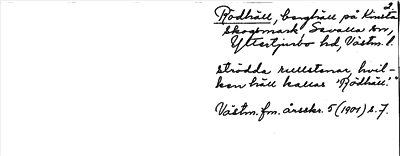 2.
Rödhäll, berghäll på Kinsta
skogsmark Sevalla sn,
Yttertjurbo hd, Västm. l.
strödda rullstenar, hvil-
ken häll kallas "Rödhäll."
Västm. fm. årsskr. 5 (1901) s. 7.